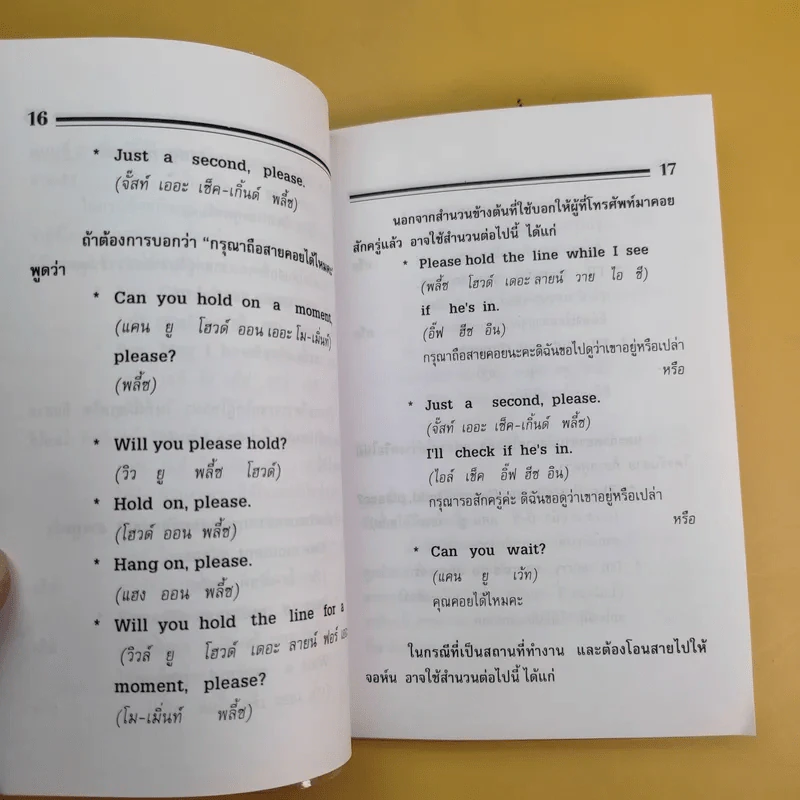 16
* Just a second, please.
(จั๊สท์ เออะ เซ็ค-เกิ้นด์ พลี้ซ)
ถ้าต้องการบอกว่า "กรุณาถือสายคอยได้ไหมคะ
พูดว่า
* Can you hold on a moment,
(แคน ยู โฮวด์ ออน เออะ โม-เมิ่นท์)
please?
(พลี้ซ)
* Will you please hold?
(วิว ยู พลี้ซ โฮวด์)
* Hold on, please.
(โฮวด์ ออน พลี้ซ)
* Hang on, please.
(แฮง ออน พลี้ซ)
* Will you hold the line for a
(วิวล์ ยู โฮวด์ เดอะ ลายน์ ฟอร์
moment, please?
(โม-เมิ่นท์ พลี้ซ)
17
นอกจากสำนวนข้างต้นที่ใช้บอกให้ผู้ที่โทรศัพท์มาคอย
สักครู่แล้ว อาจใช้สำนวนต่อไปนี้ ได้แก่
* Please hold the line while I see
(พลี้ซ โฮวด์ เดอะ ลายน์ วาย ไอ ซี)
if he's in.
(อิ๊ฟ ฮีซ อิน)
กรุณาถือสายคอยนะคะดิฉันขอไปดูว่าเขาอยู่หรือเปล่า
หรือ
* Just a second, please.
(จั๊สท์ เออะ เซ็ค-เกิ้นด์ พลี้ซ)
I'll check if he's in.
(ไอล์ เช็ค อิ๊ฟ ฮีซ อิน)
กรุณารอสักครู่ค่ะ ดิฉันขอดูว่าเขาอยู่หรือเปล่า
หรือ
* Can you wait?
(แคน ยู เว้ท)
คุณคอยได้ไหมคะ
ในกรณีที่เป็นสถานที่ทำงาน และต้องโอนสายไปให้
จอห์น อาจใช้สำนวนต่อไปนี้ ได้แก่